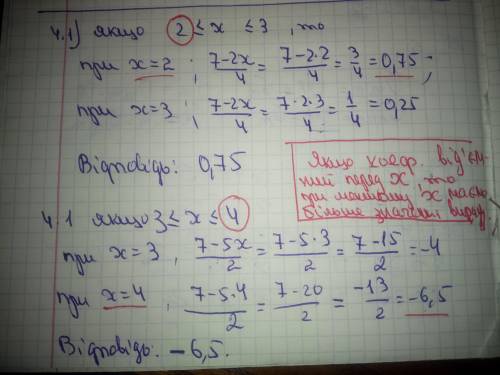 4.1) якщо 2 ≤ x ≤ 3 , то
при x=2 ; (7-2x)/4 = (7-2·2)/4 = 3/4 = 0,75 ;
при x=3 ; (7-2x)/4 = (7·2·3)/4 = 1/4 = 0,25
Відповідь: 0,75
Якщо коеф. від'єм-
ний перед x, то
при меншому x маємо
більше значення виразу
4.1 якщо 3 ≤ x ≤ 4
при x=3 , (7-5x)/2 = (7-5·3)/2 = (7-15)/2 = -4
при x=4 , (7-5·4)/2 = (7-20)/2 = -13/2 = -6,5
Відповідь: -6,5.